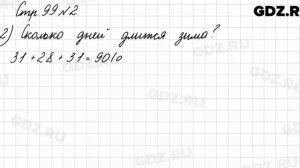 Стр. 99 №2
GDZ.RU
2) Сколько дней длится зима?
31 + 28 + 31 = 90 (о